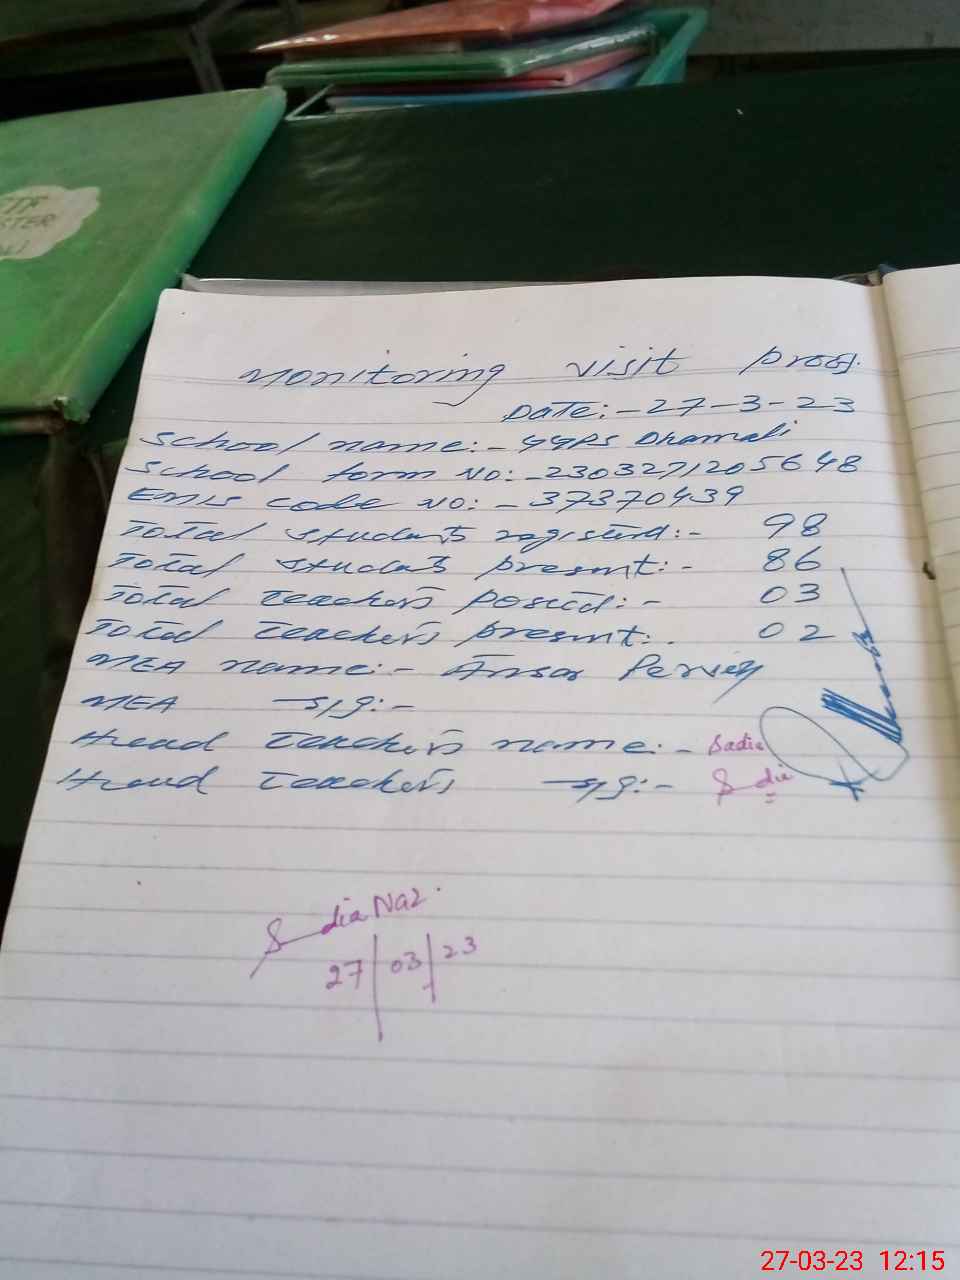 STER
Monitoring visit proof.
Date:-27-3-23
School name:- GGPS Dhamali
School form No:-2303271205648
EMIS code No:-37370439
Total students registered:- 98
Total students present:- 86
Total teachers posted:- 03
Total teachers present:. 02
MEA name:- Ansar Perviz
MEA sig:-
Head teachers name:- Sadia
Head teachers sig:- Sadia
Sadia Naz.
27/03/23
27-03-23 12:15